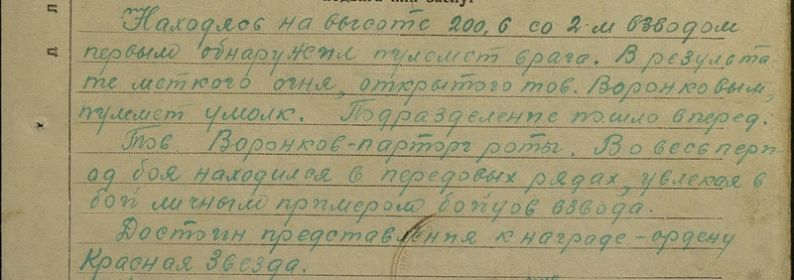 Находясь на высоте 200,6 со 2-м взводом
первым обнаружил пулемет врага. В результа-
те меткого огня, открытого тов. Воронковым,
пулемет умолк. Подразделение пошло вперед.
Тов Воронков-парторг роты. Во весь пери-
од боя находился в передовых рядах, увлекая в
бой личным примером бойцов взвода.
Достоин представления к награде - ордену
Красная Звезда.